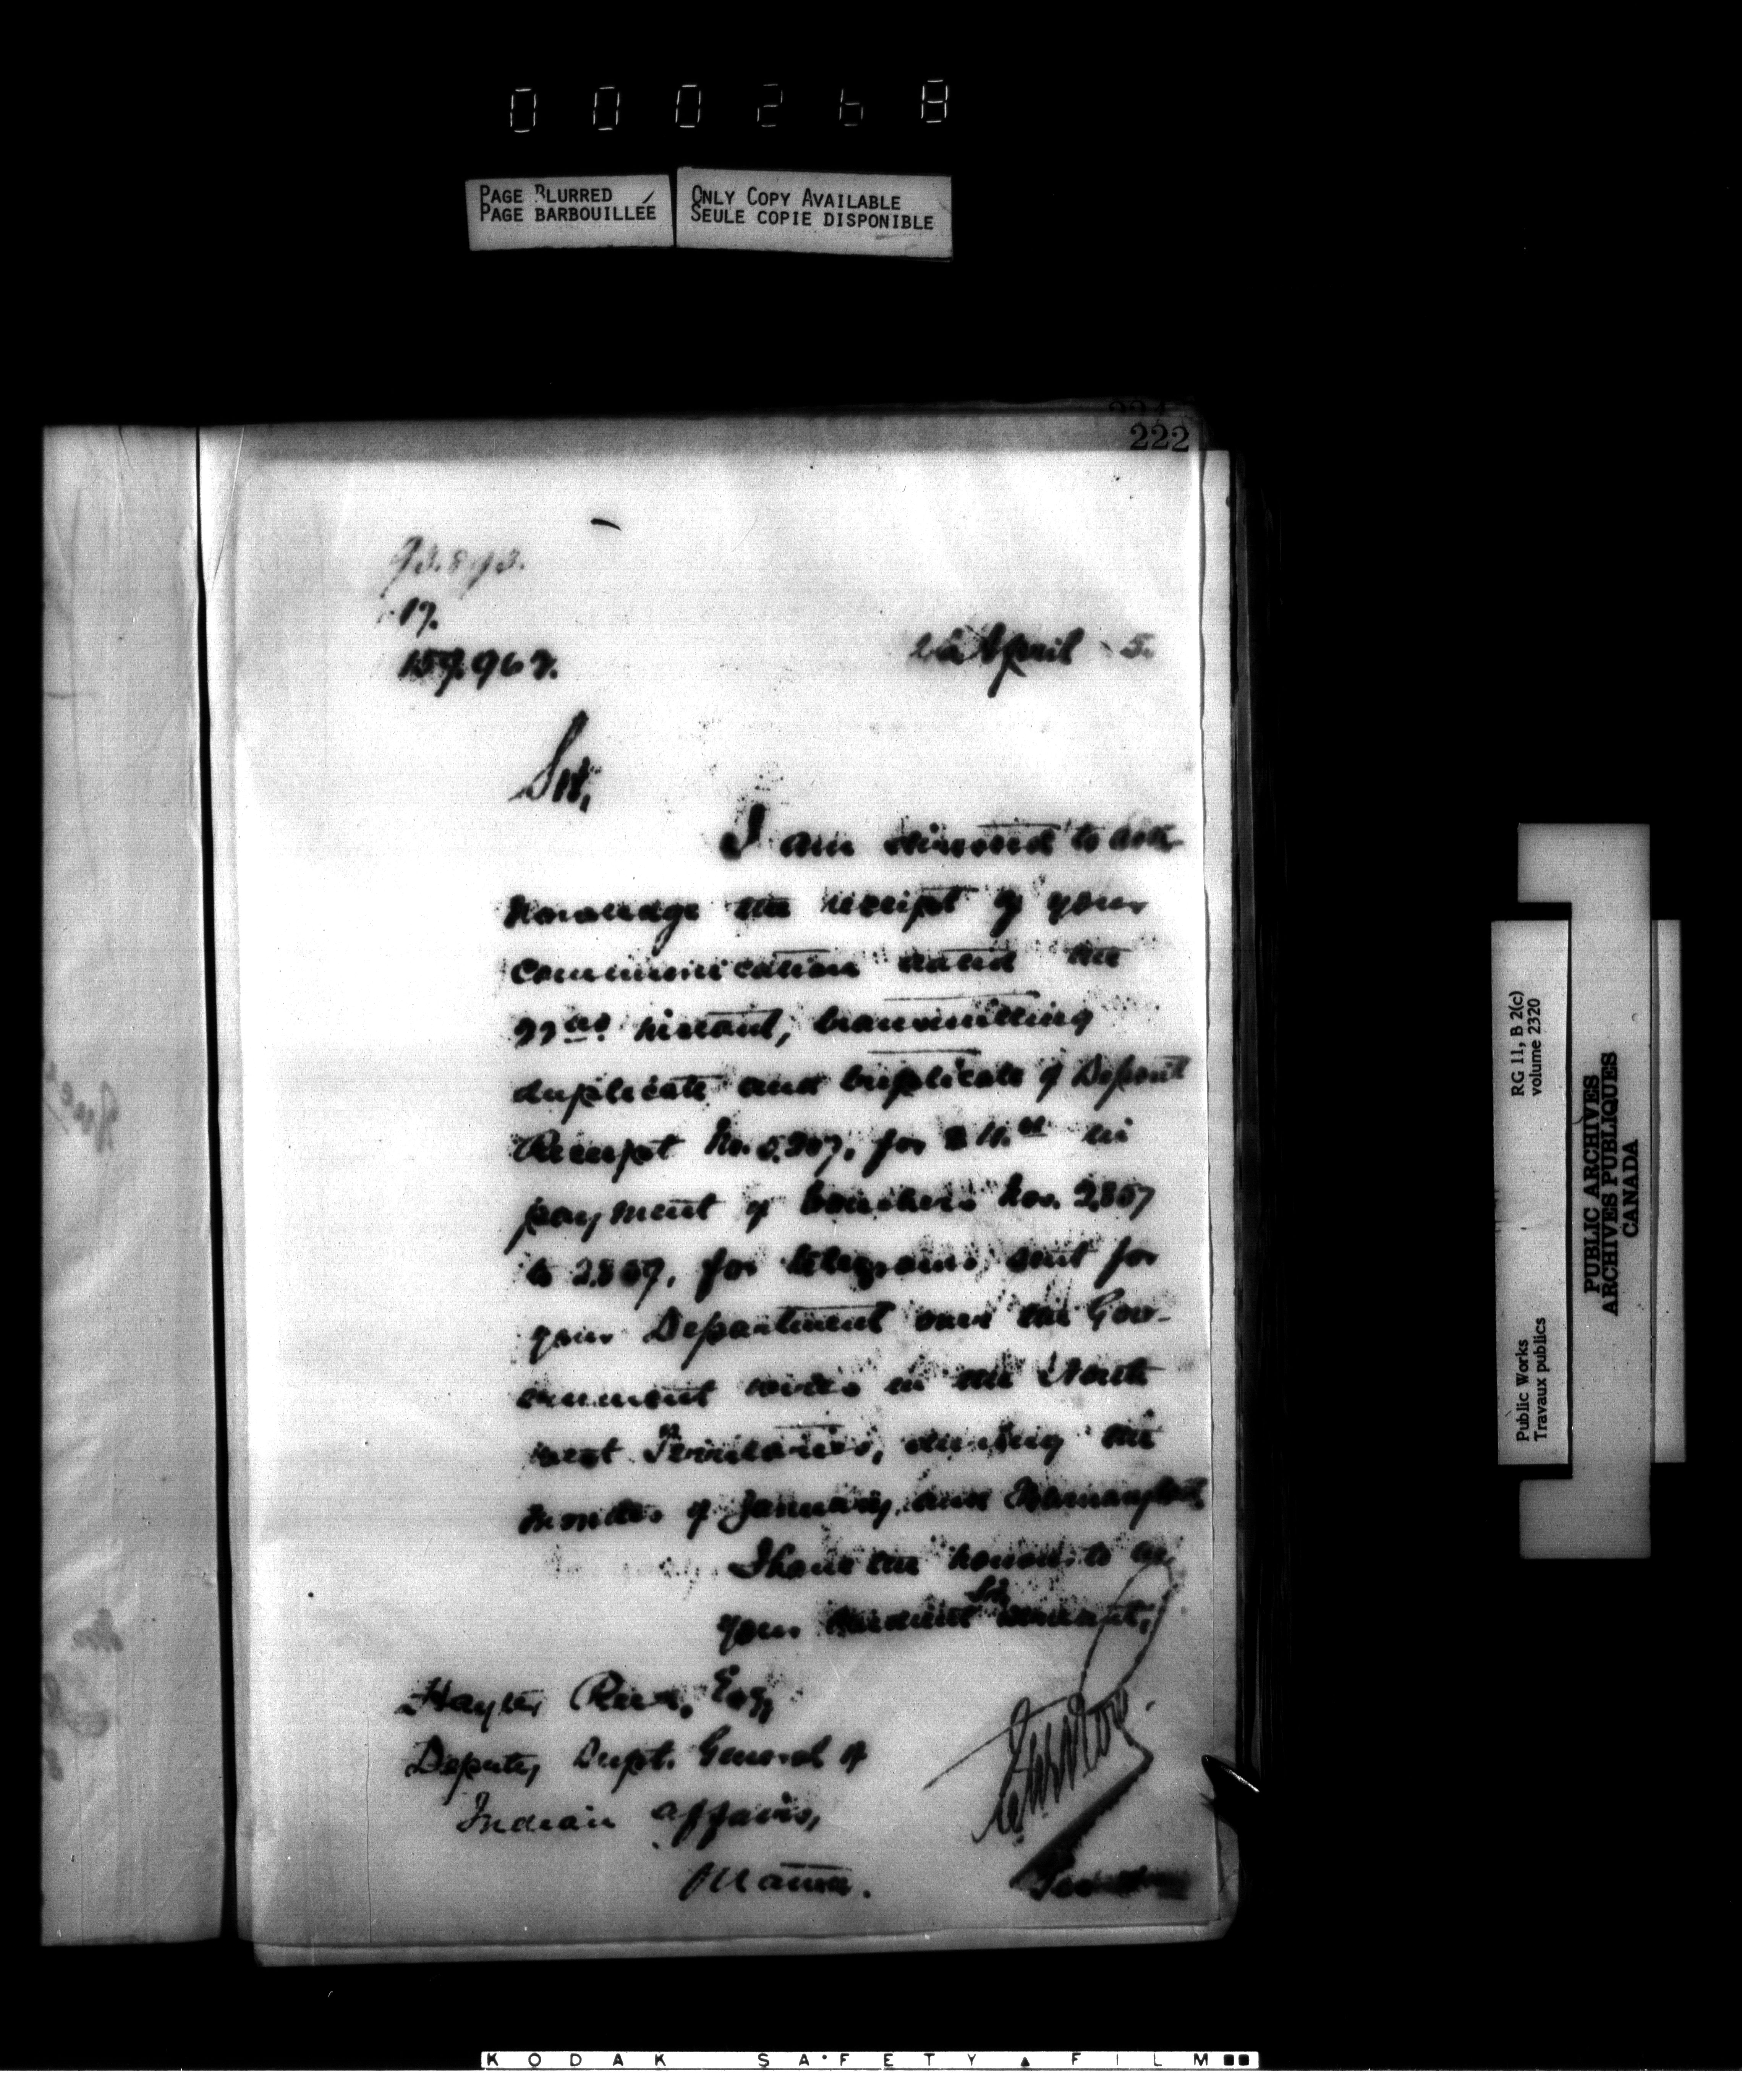 000268
PAGE BLURRED
PAGE BARBOUILLÉE
ONLY COPY AVAILABLE
SEULE COPIE DISPONIBLE
222
93.893.
17.
159.967.
April 5.
Sir,
I am directed to ack-
nowledge the receipt of your
communication dated the
22nd instant, transmitting
duplicate and triplicate of Deposit
Receipt No. 5.207, for in
payment of vouchers Nos. 2857
to 2.859, for telegrams sent for
your Department over the Gov-
ernment wires in the North
west Territories, during the
months of January and
I have the honor to be,
Sir,
your obedient servant,
Hayter Reed, Esq,
Deputy Supt. General of
Indian Affairs,
Ottawa.
RG 11, B 2(c)
volume 2320
Public Works
Travaux publics
PUBLIC ARCHIVES
ARCHIVES PUBLIQUES
CANADA
KODAK SAFETY FILM